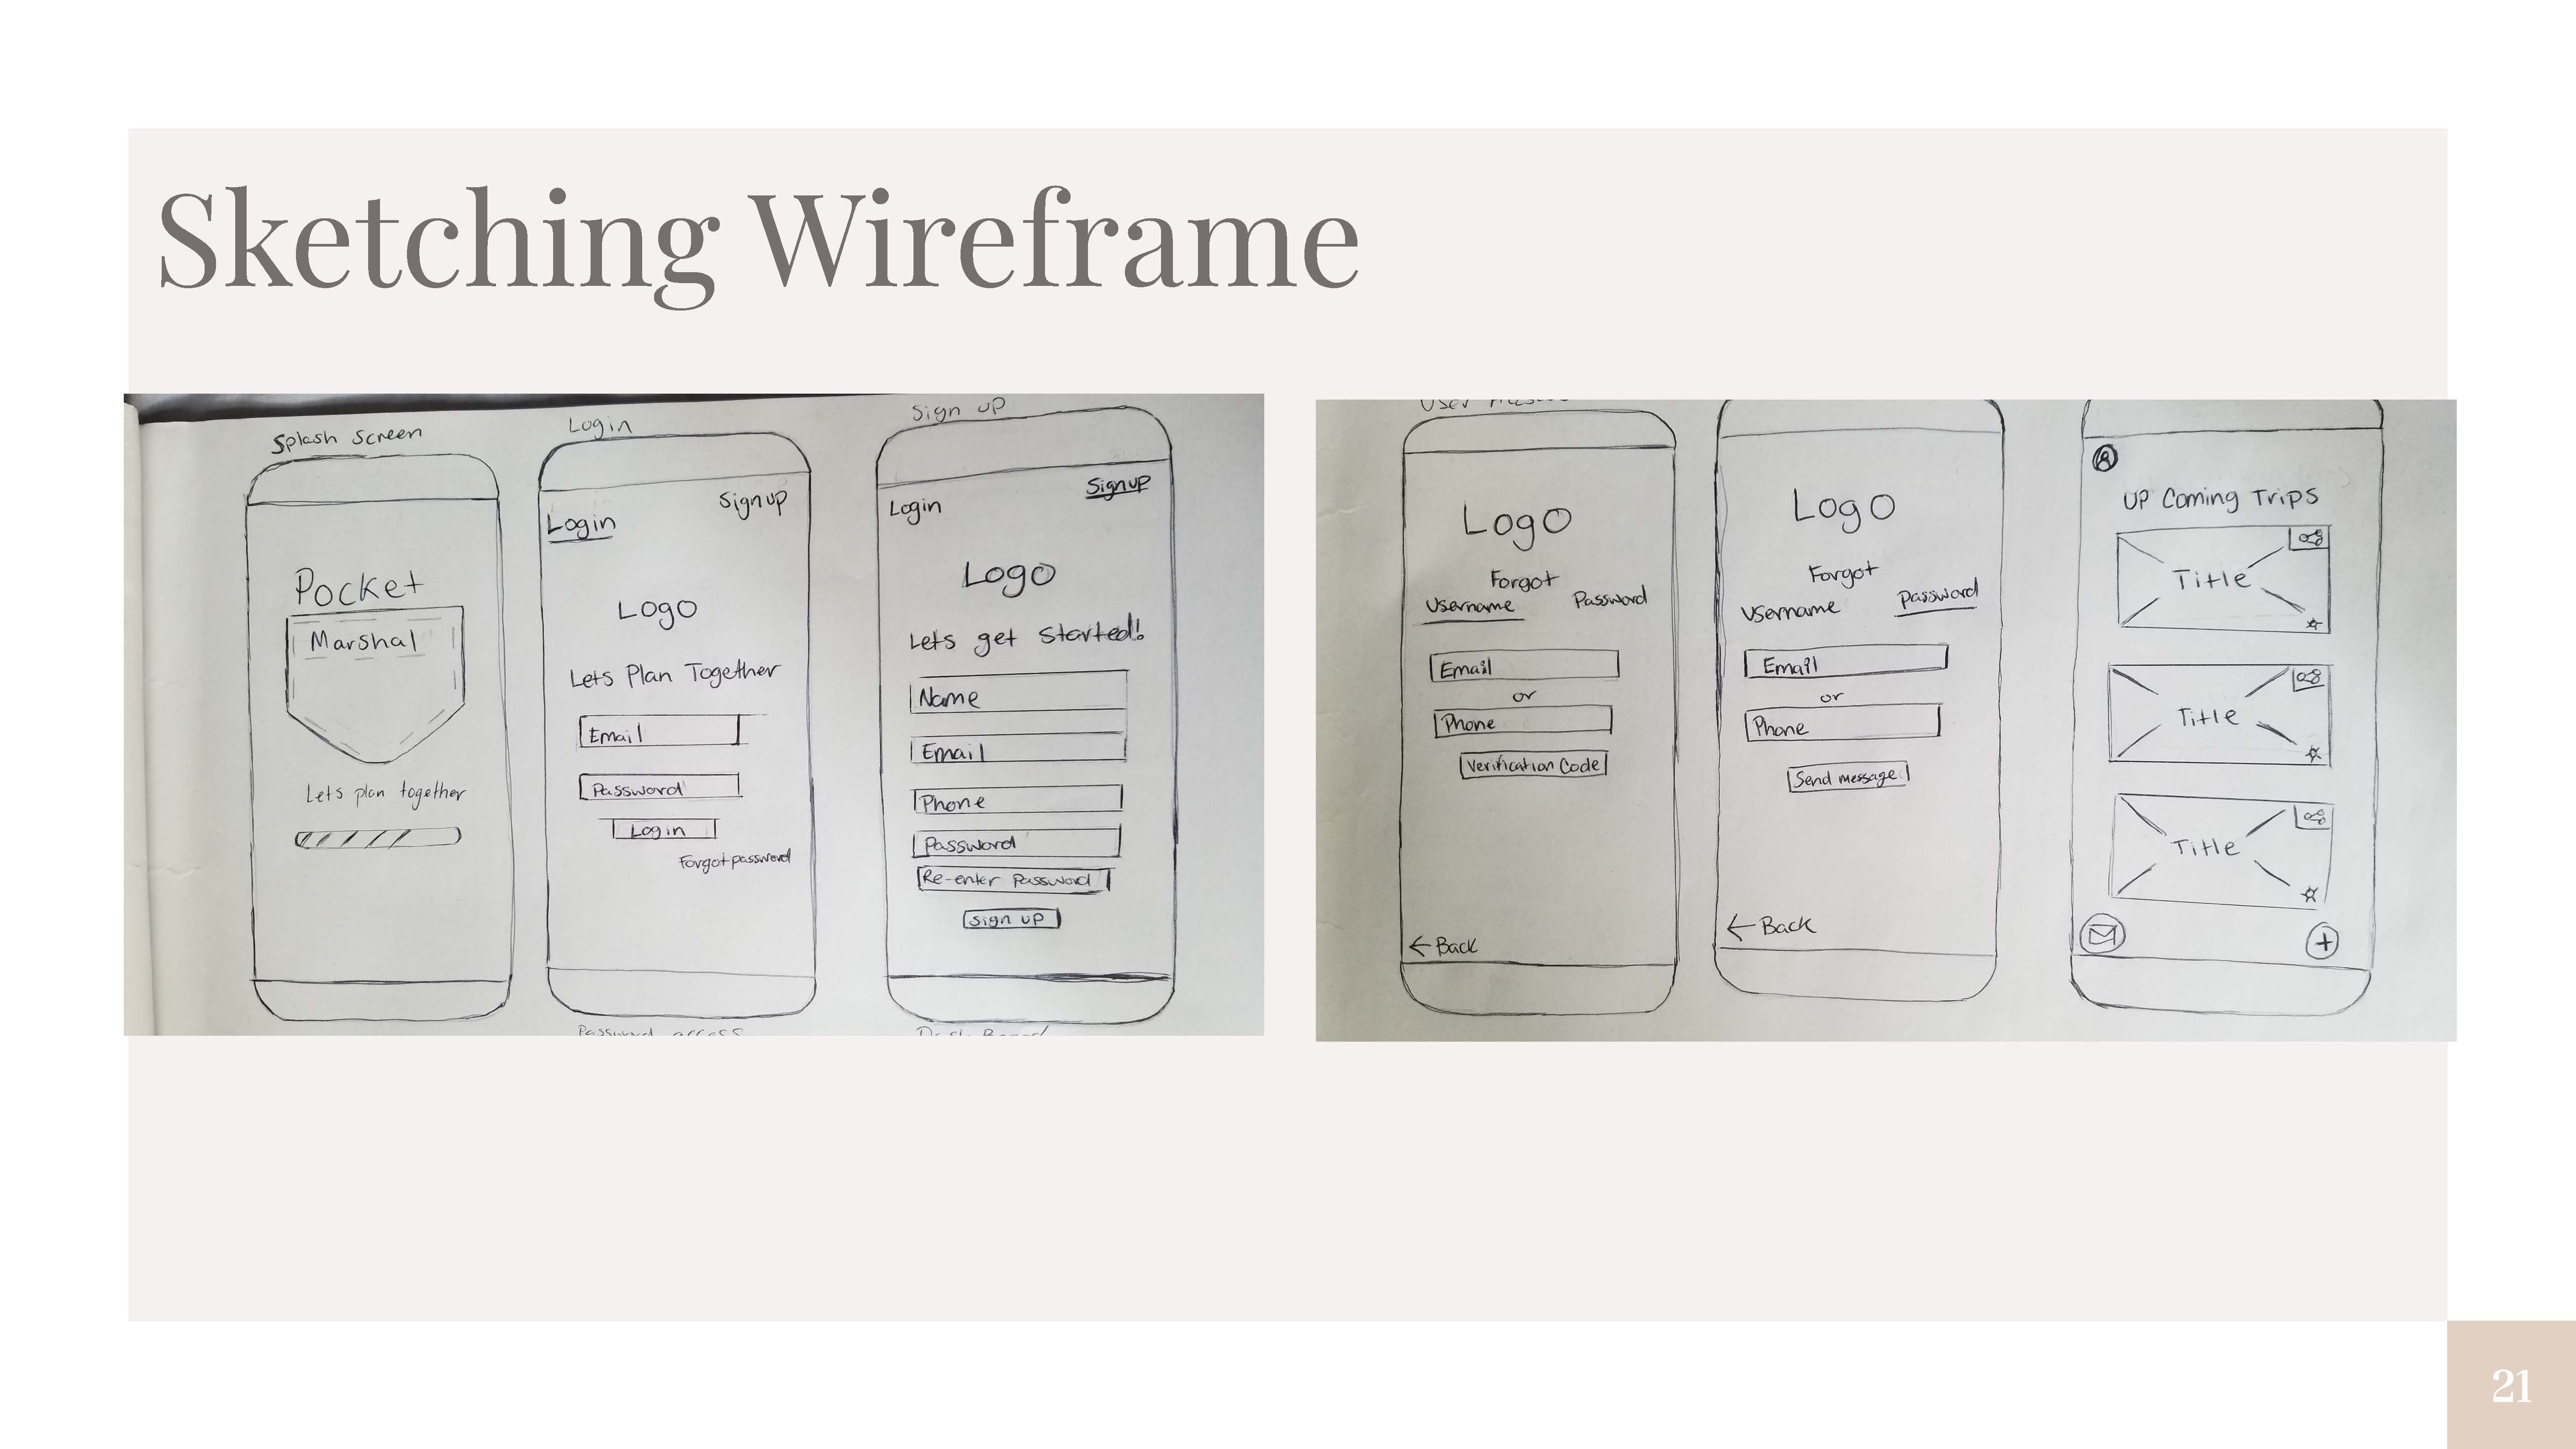 Sketching Wireframe
Splash Screen
Pocket
Marshal
Lets plan together
Login
Login
Signup
Logo
Lets Plan Together
Email
Password
Login
Forgot password
Sign up
Login
Signup
Logo
Lets get started!
Name
Email
Phone
Password
Re-enter Password
Sign up
Password access
User
Logo
Forgot
Username Password
Email
or
Phone
Verification Code
← Back
Logo
Forgot
Username Password
Email
or
Phone
Send message
← Back
UP Coming Trips
Title
Title
Title
21